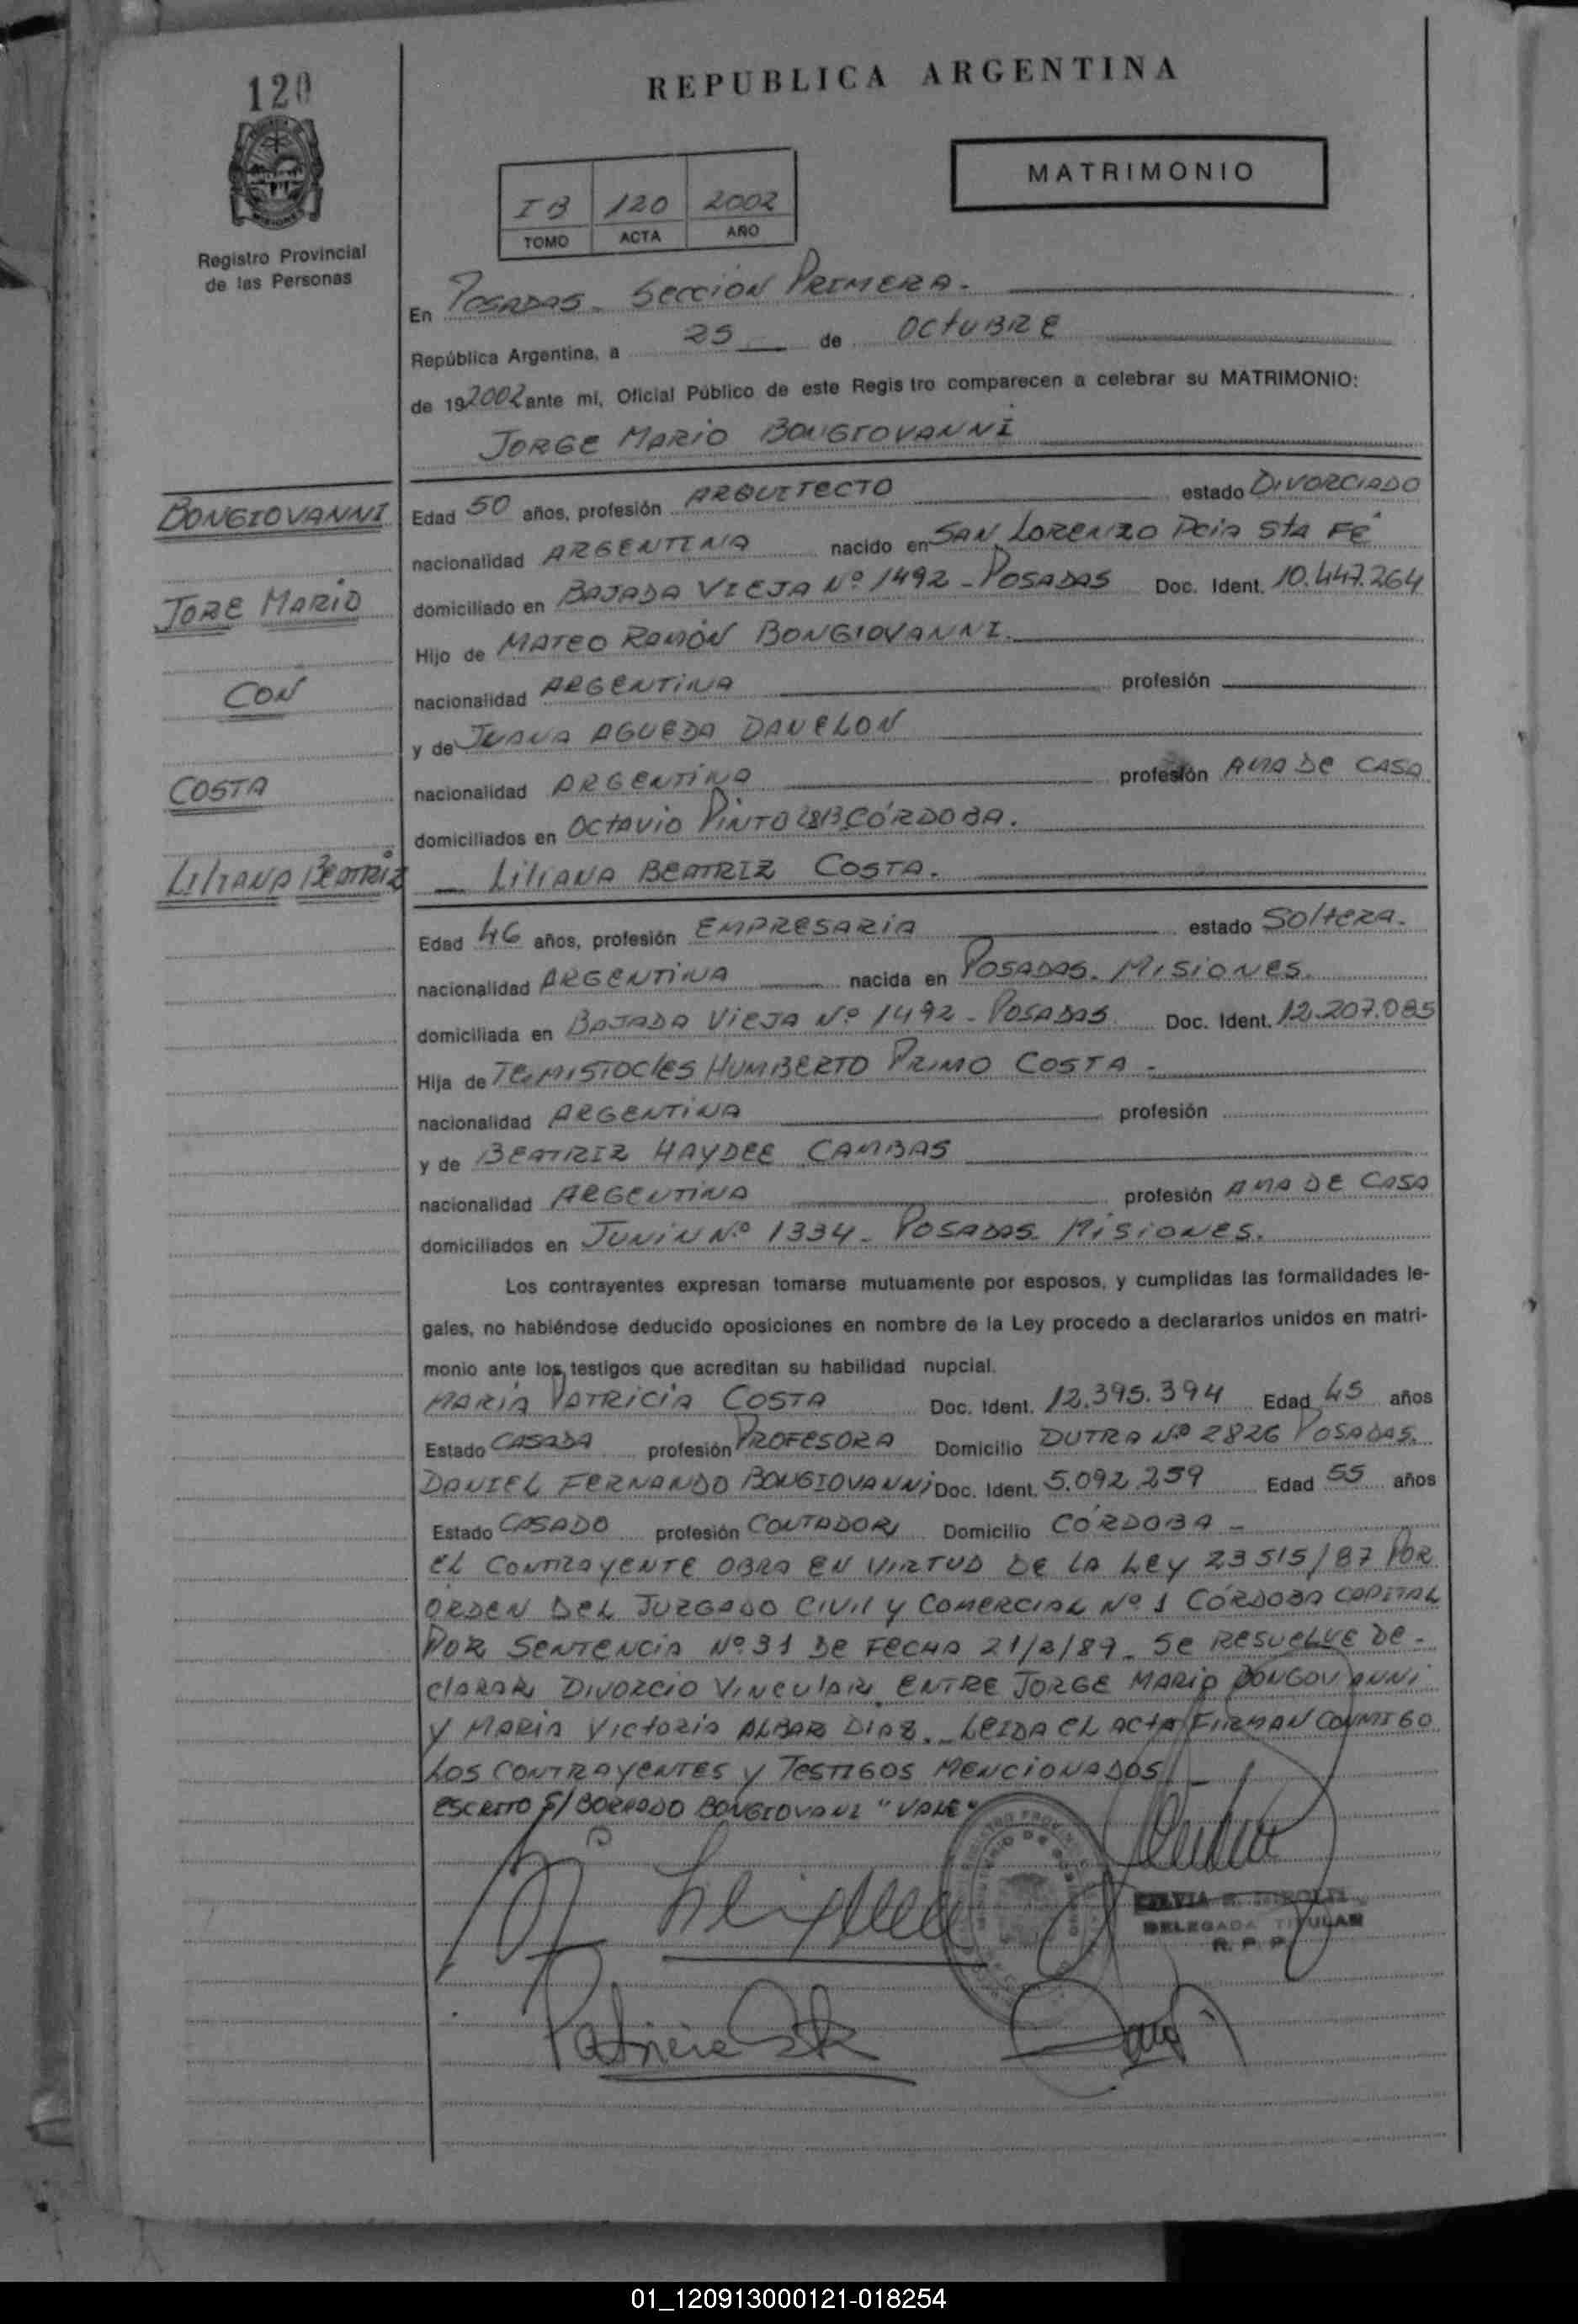 120
REPUBLICA ARGENTINA
MATRIMONIO
I B 120 2002
TOMO ACTA AÑO
Registro Provincial
de las Personas
En POSADAS - SECCION PRIMERA.
República Argentina, a 25 de OCTUBRE
de 192002 ante mi, Oficial Público de este Regis tro comparecen a celebrar su MATRIMONIO:
JORGE MARIO BONGIOVANNI
BONGIOVANNI
JORE MARIO
CON
COSTA
LILIANA BEATRIZ
Edad 50 años, profesión ARQUITECTO estado DIVORCIADO
nacionalidad ARGENTINA nacido en SAN LORENZO Pcia Sta FÉ
domiciliado en BAJADA VIEJA Nº 1492 - POSADAS Doc. Ident. 10.447.264
Hijo de MATEO RAMÓN BONGIOVANNI.
nacionalidad ARGENTINA profesión
y de JUANA AGUEDA DANELON
nacionalidad ARGENTINA profesión AMA DE CASA
domiciliados en OCTAVIO PINTO 2813 CÓRDOBA.
LILIANA BEATRIZ COSTA.
Edad 46 años, profesión EMPRESARIA estado SOLTERA.
nacionalidad ARGENTINA nacida en POSADAS. MISIONES.
domiciliada en BAJADA VIEJA Nº 1492 - POSADAS Doc. Ident. 12.207.085
Hija de TEMISTOCLES HUMBERTO PRIMO COSTA -
nacionalidad ARGENTINA profesión
y de BEATRIZ HAYDEE CAMBAS
nacionalidad ARGENTINA profesión AMA DE CASA
domiciliados en JUNIN Nº 1334 - POSADAS. MISIONES.
Los contrayentes expresan tomarse mutuamente por esposos, y cumplidas las formalidades le-
gales, no habiéndose deducido oposiciones en nombre de la Ley procedo a declararlos unidos en matri-
monio ante los testigos que acreditan su habilidad nupcial.
MARÍA PATRICIA COSTA Doc. Ident. 12.395.394 Edad 45 años
Estado CASADA profesión PROFESORA Domicilio DUTRA Nº 2826 POSADAS.
DANIEL FERNANDO BONGIOVANNI Doc. Ident. 5.092.259 Edad 55 años
Estado CASADO profesión CONTADOR Domicilio CÓRDOBA -
EL CONTRAYENTE OBRA EN VIRTUD DE LA LEY 23515/87 POR
ORDEN DEL JUZGADO CIVIL Y COMERCIAL Nº 1 CÓRDOBA CAPITAL
POR SENTENCIA Nº 31 DE FECHA 21/2/89 - SE RESUELVE DE-
CLARAR DIVORCIO VINCULAR ENTRE JORGE MARIO BONGOVANNI
Y MARIA VICTORIA ALBAR DIAZ. - LEIDA EL ACTA FIRMAN CONMIGO
LOS CONTRAYENTES Y TESTIGOS MENCIONADOS
ESCRITO S/ BORRADO BONGIOVANI "VALE"
Patricia Costa
DELEGADA TITULAR
R. P. P.
01_120913000121-018254